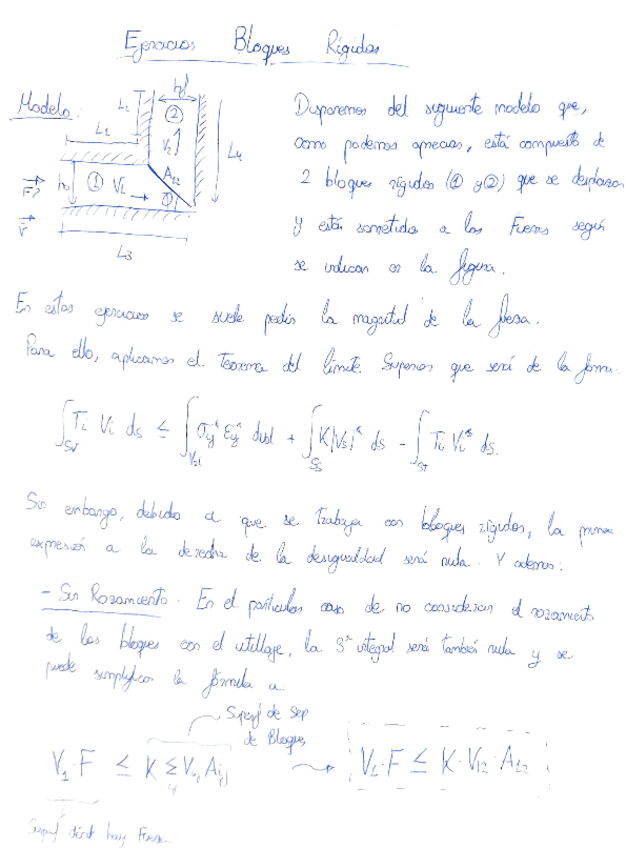 Ejercicios Bloques Rígidos
Modelo:
L2
hf
②
V2
L4
L1
A12
F?
h0
① V1
①
V
L3
Disponemos del siguiente modelo que,
como podemos apreciar, está compuesto de
2 bloques rígidos (① y ②) que se desplazan
y está sometido a las Fuerzas según
se indican en la figura.
En estos ejercicios se suele pedir la magnitud de la fuerza.
Para ello, aplicamos el Teorema del límite. Supremos que será de la forma:
∫Sv Ti Vi ds ≤ ∫Vol σij* ε̇ij* dvol + ∫Ss K|Vs|* ds - ∫ST Ti Vi* ds.
Sin embargo, debido a que se trabaja con bloques rígidos, la primera
expresión a la derecha de la desigualdad será nula. Y además:
- Sin Rozamiento. En el particular caso de no considerar el rozamiento
de los bloques con el utillaje, la 3ª integral será también nula y se
puede simplificar la fórmula a:
Superf de Sep
de Bloques
V1·F ≤ K Σij Vij Aij → V1·F ≤ K·V12·A12
Superf dónde hay Fuerza